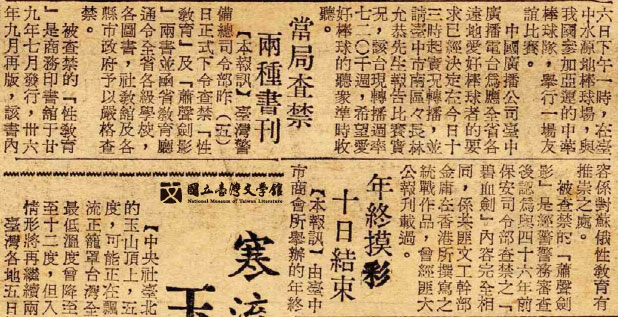 六日下午一時，在臺
中水源地棒球場，與
我國參加亞運的中華
棒球隊，舉行一場友
誼比賽。
中國廣播公司臺中
廣播電台爲應全省各
遠地愛好棒球者的要
求已經決定在今日十
三時起實况轉播，並
請臺中市南區々長林
允恭先生報告比賽實
况，該台現轉播週率
七二〇千週，希望愛
好棒球的聽衆準時收
聽。
當局查禁
兩種書刊
【本報訊】臺灣警
備總司令部昨（五）
日正式下令查禁「性
教育」及「蕭聲劍影
」兩書並函省教育廳
通令全省各級學校，
各圖書，社教館及各
縣市政府予以嚴格查
禁。
被查禁的「性教育
」是商務印書館于廿
九年七月發行，卅六
年九月再版，該書內
容係對蘇俄性教育有
推崇之處。
被查禁的「蕭聲劍
影」是經警務審查
後認爲與四十六年前
保安司令部查禁之「
碧血劍」內容完全相
同，係共匪文工幹部
金庸在香港所撰寫之
統戰作品，曾經匪大
公報刊載過。
年終摸彩
十日結束
【本報訊】由臺中
市商會所舉辦的年終
國立臺灣文學館
National Museum of Taiwan Literature
寒流
玉
【中央社臺北
的玉山頂上，五
度，可能正在飄
流正籠罩台灣全
最低溫度曾降至
至十二度，但入
情形將再繼續兩
臺灣各地五日